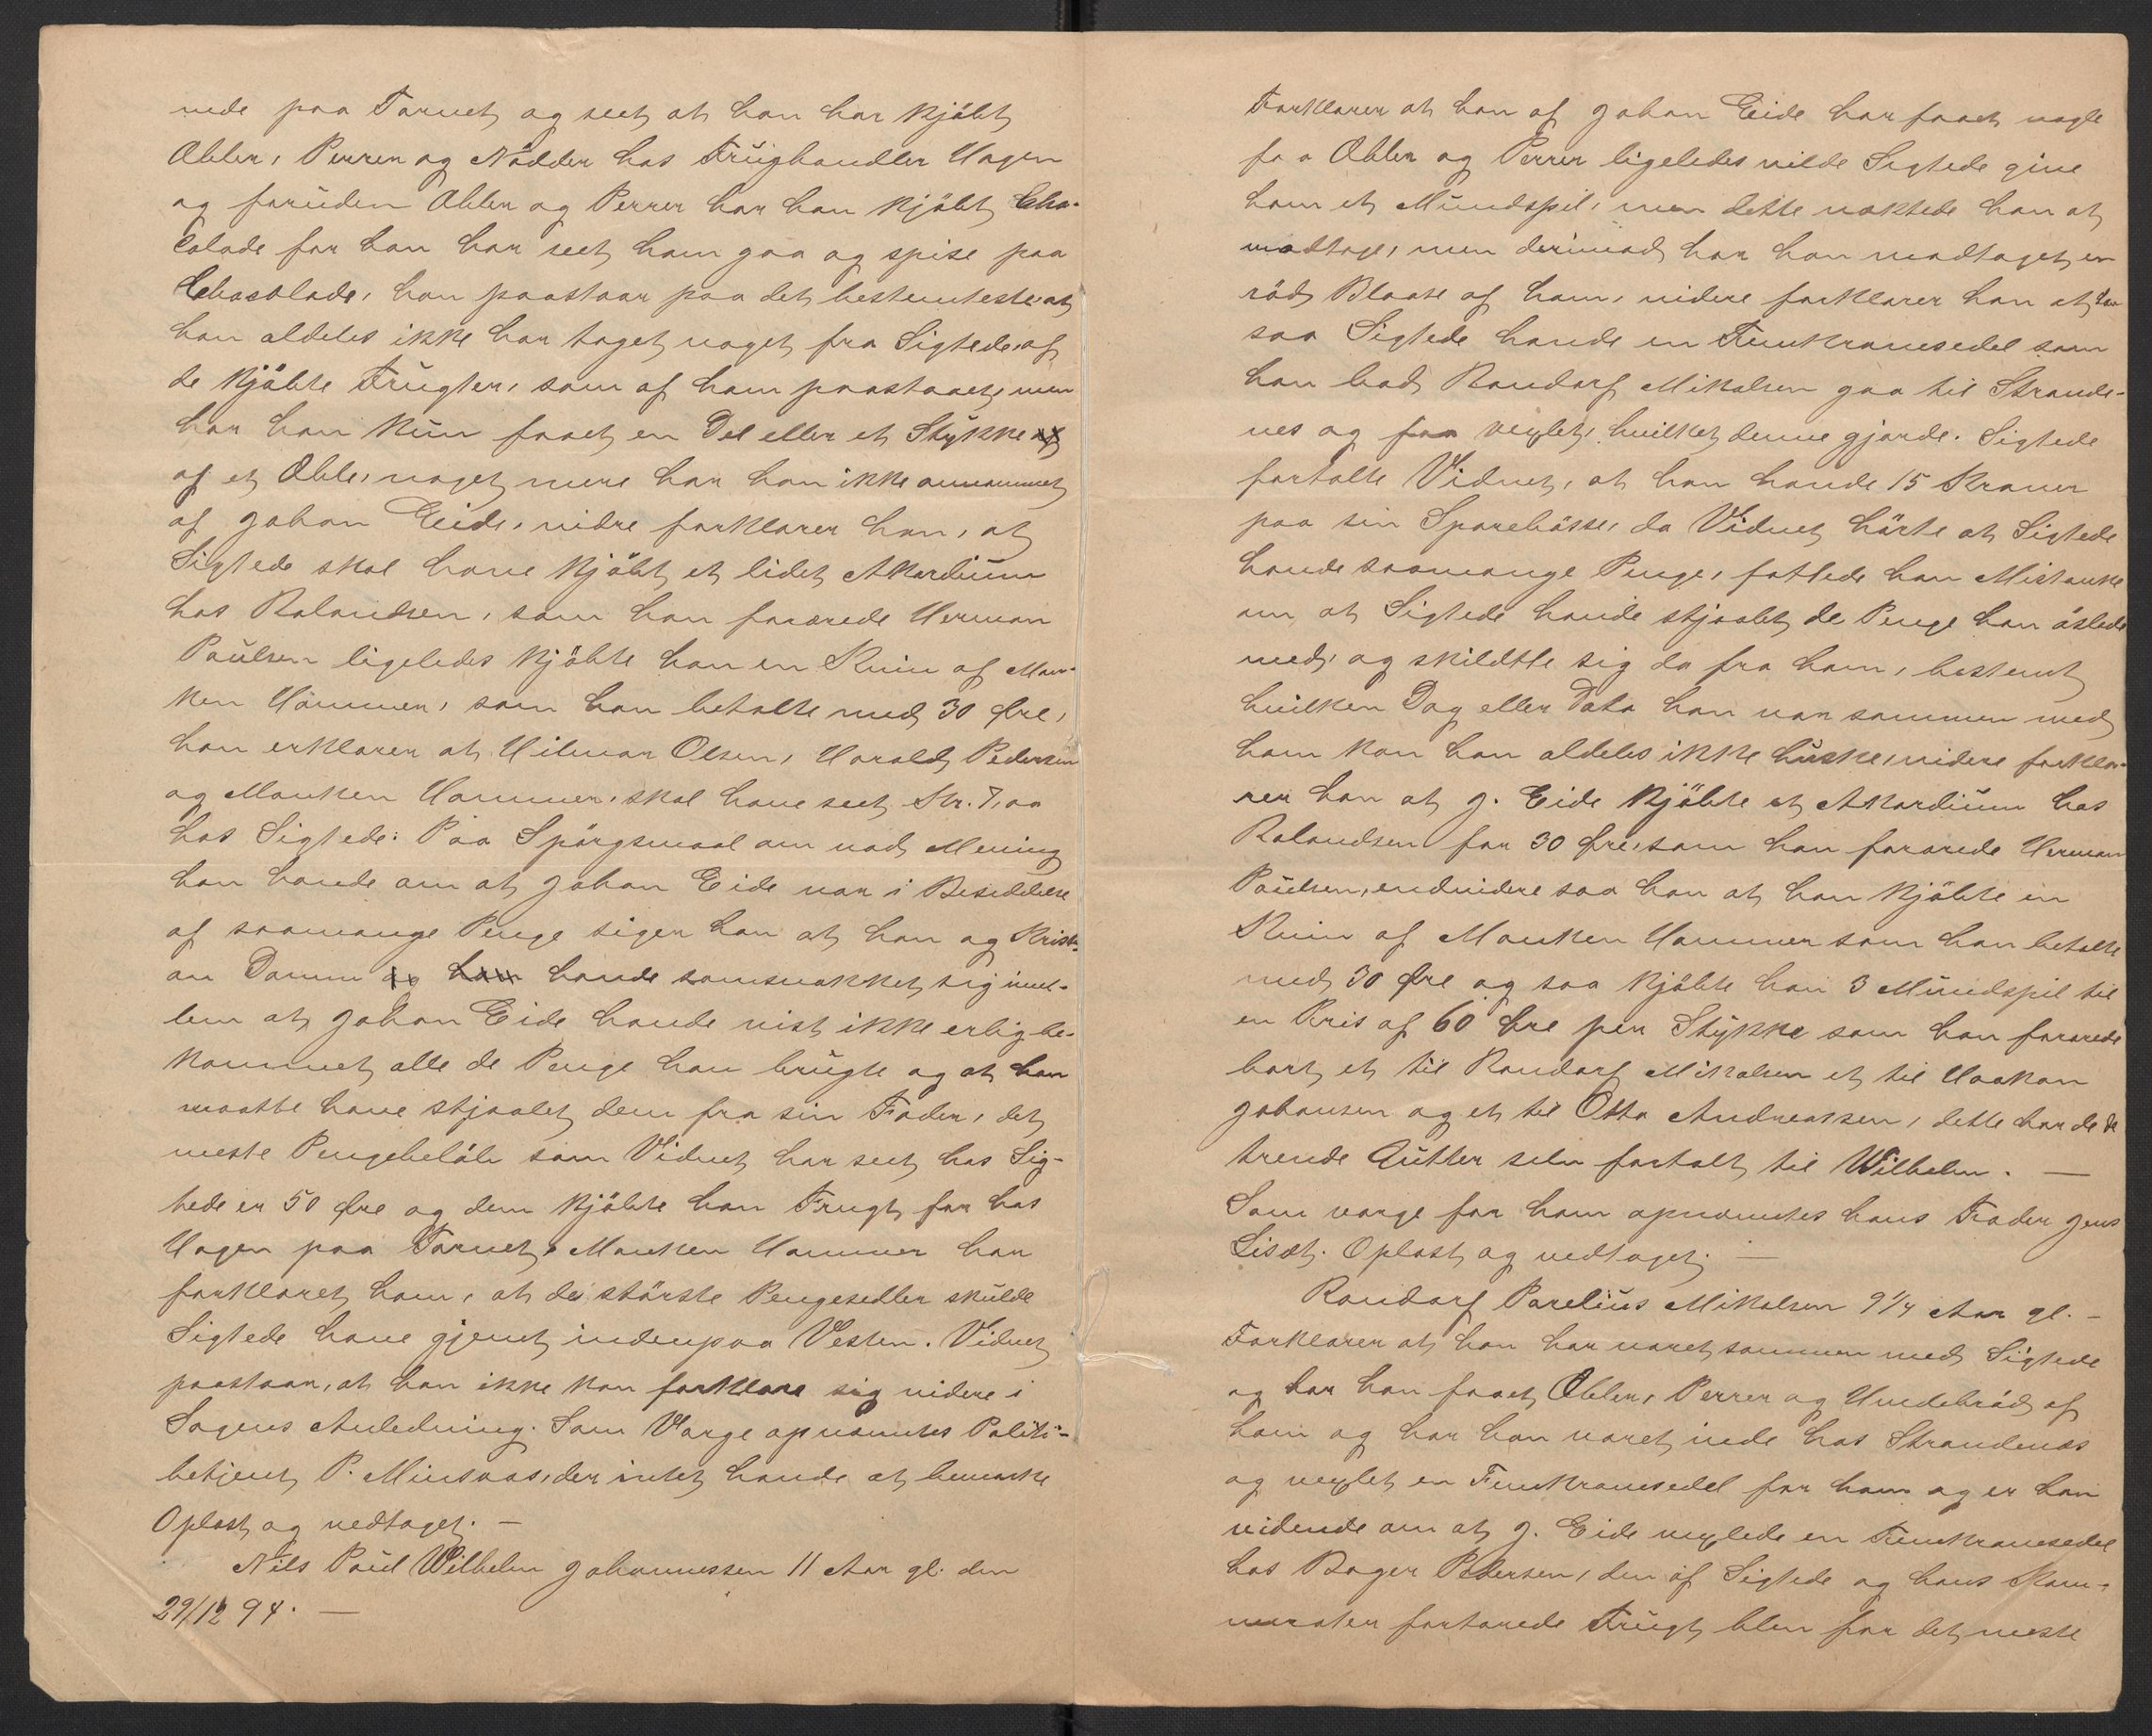 nede paa Torvet og seet at han har kjöbt
Æbler, Pærer og Nödder hos Frügthandler Hagen
og foruden Æbler og Pærer har han kjöbt Cho-
colade for han har seet ham gaa og spise paa
Chocolade, han paastaar paa det bestemteste at
han aldeles ikke har taget noget fra Sigtede af
de kjöbte Frügter, som af ham paastaaet, men
har han kün faaet en Del eller et Stykke
af et Æble, noget mere har han ikke annammet
af Johan Eide, vidre forklarer han, at
Sigtede skal have kjöbt et lidet Akordiüm
hos Rolandsen, som han forærede Herman
Paülsen ligeledes kjöbte han en Kniv af Mon-
ken Hammer, som han betalte med 30 Øre,
han erklærer at Hilmar Olsen, Harald Pedersen
og Monken Hammer, skal have seet Kr. 7,00
hos Sigtede: Paa Spörgsmaal om vad Mening
han havde om at Johan Eide var i Besiddelse
af saamange Penge siger han at han og Kristi-
an Damm havde samsnakket sig imel-
lem at Johan Eide havde vist ikke erlig be-
kommet alle de Penge han brügte og at han
maatte have stjaalet dem fra sin Fader, det
meste Pengebelöb som Vidnet har seet hos Sig-
tede er 50 Øre og dem kjöbte han Frugt for hos
Hagen paa Torvet, Monken Hammer har
forklaret ham, at de störste Pengesedler skülde
Sigtede have gjemt indenpaa Vesten. Vidnet
paastaar, at han ikke kan forklare sig videre i
Sagens Anledning. Som Værge opnævntes Politi-
betjent P. Minsaas, der intet havde at bemærke
Oplæst og vedtaget. —
Nils Paul Wilhelm Johannessen 11 Aar gl. den
29/12 94. —
Forklarer at han af Johan Eide har faaet nogle
faa Æbler og Pærer ligeledes vilde Sigtede give
ham et Mündspil, men dette nægtede han at
modtage, men derimod har han modtaget en
röd Blaase af ham, videre forklarer han at han
saa Sigtede havde en Femkronesedel som
han bad Rondorf Mikalsen gaa til Strande-
nes og faa vexlet, hvilket denne gjorde. Sigtede
fortalte Vidnet, at han havde 15 Kroner
paa sin Sparebösse, da Vidnet hörte at Sigtede
havde saamange Penge, fattede han Mistanke
om at Sigtede havde stjaalet de Penge han öslede
med, og skildte sig da fra ham, bestemt
hvilken Dag eller Dato han var sammen med
ham kan han aldeles ikke hüske, videre forkla-
rer han at J. Eide kjöbte et Akordiüm hos
Rolandsen for 30 Øre, som han forærede Herman
Paülsen, endvidere saa han at han kjöbte en
Kniv af Monken Hammer som han betalte
med 30 Øre og saa kjöbte han 3 Mündspil til
en Pris af 60 Øre per Stÿkke som han forærede
bort et til Rondorf Mikalsen et til Haakon
Johansen og et til Otto Andreassen, dette har de de
trende Gütter selv fortalt til Wilhelm. —
Som værge for ham opnævntes hans Fader Jens
Lisæt. Oplæst og vedtaget. —
Rondorf Parelius Mikalsen 9 1/4 Aar gl. —
Forklarer at han har været sammen med Sigtede
og har han faaet Æbler, Pærer og Hvedebröd af
ham og har han været inde hos Strandenæs
og vexlet en Femkronesedel for ham og er han
vidende om at J. Eide vexlede en Femkronesedel
hos Bager Pedersen, den af Sigtede og hans Kam-
merater fortærede Frügt blev for det meste